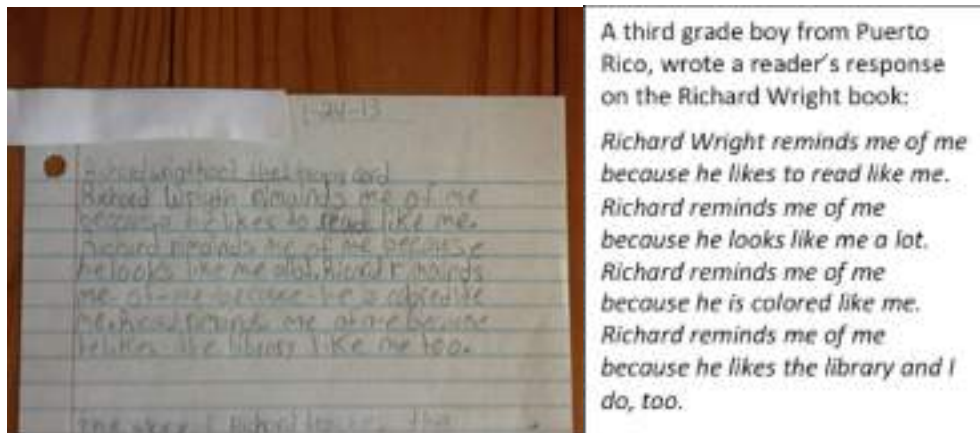 1-24-13
Richard wright and the library card
Richard Wright rimainds me of me
because he likes to read like me.
Richard rimainds me of me because
he looks like me alot. Richard rimainds
me of me because he is colored like
me. Richard rimainds me of me because
he likes the library like me too.
The story Richard
A third grade boy from Puerto
Rico, wrote a reader's response
on the Richard Wright book:
Richard Wright reminds me of me
because he likes to read like me.
Richard reminds me of me
because he looks like me a lot.
Richard reminds me of me
because he is colored like me.
Richard reminds me of me
because he likes the library and I
do, too.